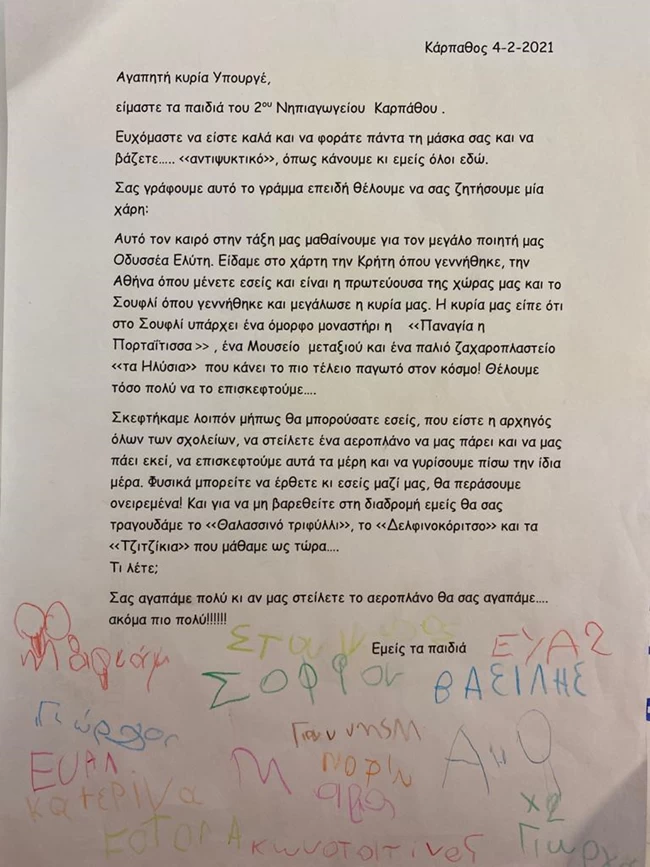 Κάρπαθος 4-2-2021
Αγαπητή κυρία Υπουργέ,
είμαστε τα παιδιά του 2ου Νηπιαγωγείου Καρπάθου .
Ευχόμαστε να είστε καλά και να φοράτε πάντα τη μάσκα σας και να
βάζετε….. <<αντιψυκτικό>>, όπως κάνουμε κι εμείς όλοι εδώ.
Σας γράφουμε αυτό το γράμμα επειδή θέλουμε να σας ζητήσουμε μία
χάρη:
Αυτό τον καιρό στην τάξη μας μαθαίνουμε για τον μεγάλο ποιητή μας
Οδυσσέα Ελύτη. Είδαμε στο χάρτη την Κρήτη όπου γεννήθηκε, την
Αθήνα όπου μένετε εσείς και είναι η πρωτεύουσα της χώρας μας και το
Σουφλί όπου γεννήθηκε και μεγάλωσε η κυρία μας. Η κυρία μας είπε ότι
στο Σουφλί υπάρχει ένα όμορφο μοναστήρι η <<Παναγία η
Πορταΐτισσα>> , ένα Μουσείο μεταξιού και ένα παλιό ζαχαροπλαστείο
<<τα Ηλύσια>> που κάνει το πιο τέλειο παγωτό στον κόσμο! Θέλουμε
τόσο πολύ να το επισκεφτούμε….
Σκεφτήκαμε λοιπόν μήπως θα μπορούσατε εσείς, που είστε η αρχηγός
όλων των σχολείων, να στείλετε ένα αεροπλάνο να μας πάρει και να μας
πάει εκεί, να επισκεφτούμε αυτά τα μέρη και να γυρίσουμε πίσω την ίδια
μέρα. Φυσικά μπορείτε να έρθετε κι εσείς μαζί μας, θα περάσουμε
ονειρεμένα! Και για να μη βαρεθείτε στη διαδρομή εμείς θα σας
τραγουδάμε το <<Θαλασσινό τριφύλλι>>, το <<Δελφινοκόριτσο>> και τα
<<Τζιτζίκια>> που μάθαμε ως τώρα….
Τι λέτε;
Σας αγαπάμε πολύ κι αν μας στείλετε το αεροπλάνο θα σας αγαπάμε….
ακόμα πιο πολύ!!!!!!
Εμείς τα παιδιά
ΒΑΣΙΛΗΣ
Γιώργος
ΚατΕΡΙΝα